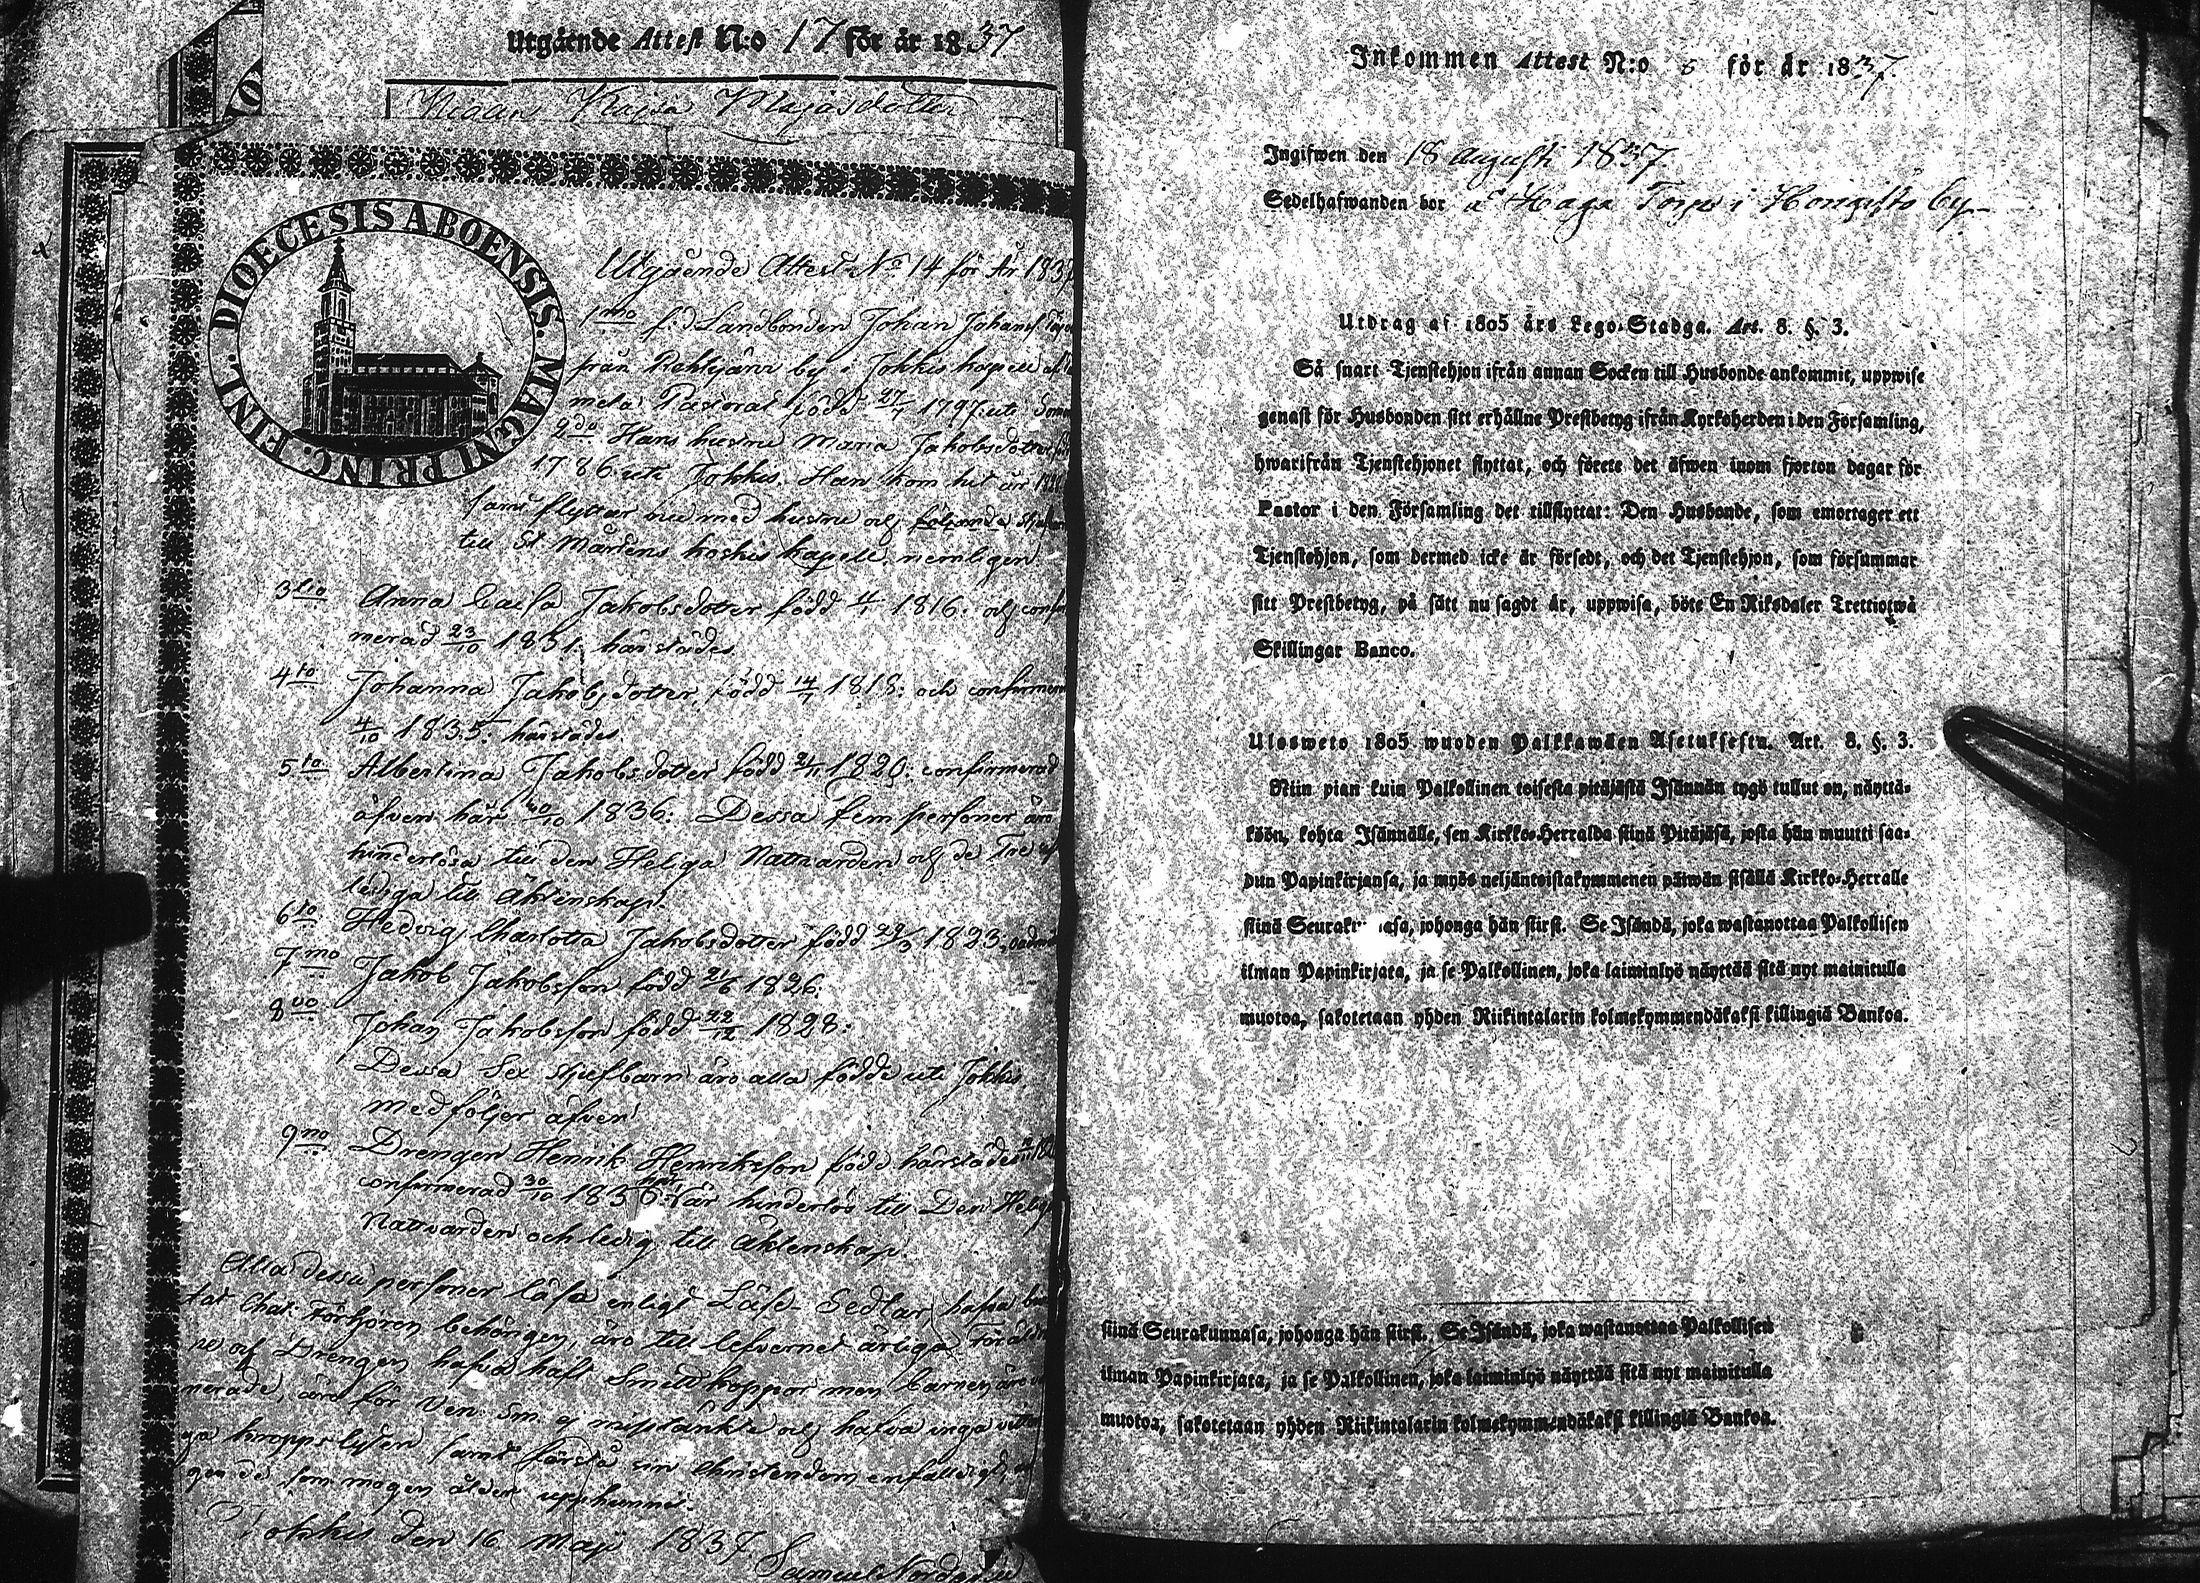 Utgående Attest N:o 17 för år 1837
Kajsa Majasdotter
FINL. DIOECESIS ABOENSIS. MAGNI PRINC.
Utgående Attest No 14 för År 1837
1mo f:d Landbonden Johan Johansf
från Rehtijärvi by i Jokkis kapell af
mela Pastorat född 27/7 1797 uti
2do Hans hustru Maria Jakobsdotter
1786 uti Jokkis. Han kom hit år 1828
samt flyttar nu med hustru och följande
till St Mårtens koskis kapell, nemligen
3tio Anna Caisa Jakobsdotter född 1816: och confir
merad 23/10 1831. härstädes
4to Johanna Jakobsdotter, född 14/7 1818: och confirmerad
4/10 1835: härstädes
5to Albertina Jakobsdotter född 2/11 1820: confirmerad
äfven här 30/10 1836: Dessa fem personer äro
hinderlösa till den Heliga Nattvarden och de Tre
lediga till Äktenskap.
6to Hedvig Charlotta Jakobsdotter född 29/3 1823
7mo Jakob Jakobsson född 21/6 1826:
8vo Johan Jakobsson född 22/12 1828:
Dessa Sex styfbarn äro alla födde uti Jokkis
medföljer äfven
9no Drengen Henrik Henriksson född härstädes
confirmerad 30/10 1836 här, är hinderlös till Den Helig
Nattvarden och ledig till Äktenskap.
Alla dessa personer läsa enligt Läse-Sedlar, hafva
tat Chat: Förhören behörigen, äro till lefvernet ärliga
och Drengen hafva haft Smittkoppor men barnen äro
nerade, äro för Ven: Sm. ej misstänkte och hafva inga
ga kroppslyten samt förstå sin Christendom enfaldigt
de som mogen ålder upphunnit.
Jokkis den 16 Maji 1837.
Samuel
Inkommen Attest N:o 5 för år 1837.
Ingifwen den 18 Augusti 1837.
Sedelhafwanden bor å Haga Torp i Hongisto by
Utdrag af 1805 års Lego-Stadga. Art. 8. §. 3.
Så snart Tjenstehjon ifrån annan Socken till Husbonde ankommit, uppwise
genast för Husbonden sitt erhållne Prestbetyg ifrån Kyrkoherden i den Församling,
hwarifrån Tjenstehjonet flyttat, och förete det äfwen inom fjorton dagar för
Pastor i den Församling det tillflyttat: Den Husbonde, som emottager ett
Tjenstehjon, som dermed icke är försedt, och det Tjenstehjon, som försummar
sitt Prestbetyg, på sätt nu sagdt är, uppwisa, böte En Riksdaler Trettiotwå
Skillingar Banco.
Ulosweto 1805 wuoden Palkkawäen Asetuksesta. Art. 8. §. 3.
Niin pian kuin Palkollinen toisesta pitäjästä Isännän tygö tullut on, näyttä-
köön, kohta Isännälle, sen Kirkko-Herralda siinä Pitäjäsä, josta hän muutti saa-
dun Papinkirjansa, ja myös neljäntoistakymmenen päiwän sisällä Kirkko-Herralle
siinä Seurakunnasa, johonga hän siirst. Se Isändä, joka wastanottaa Palkollisen
ilman Papinkirjata, ja se Palkollinen, joka laiminlyö näyttää sitä nyt mainitulla
muotoa, sakotetaan yhden Riikintalarin kolmekymmendäkaksi killingiä Bankoa.
siinä Seurakunnasa, johonga hän siirst. Se Isändä, joka wastanottaa Palkollisen
ilman Papinkirjata, ja se Palkollinen, joka laiminlyö näyttää sitä nyt mainitulla
muotoa, sakotetaan yhden Riikintalarin kolmekymmendäkaksi killingiä Bankoa.